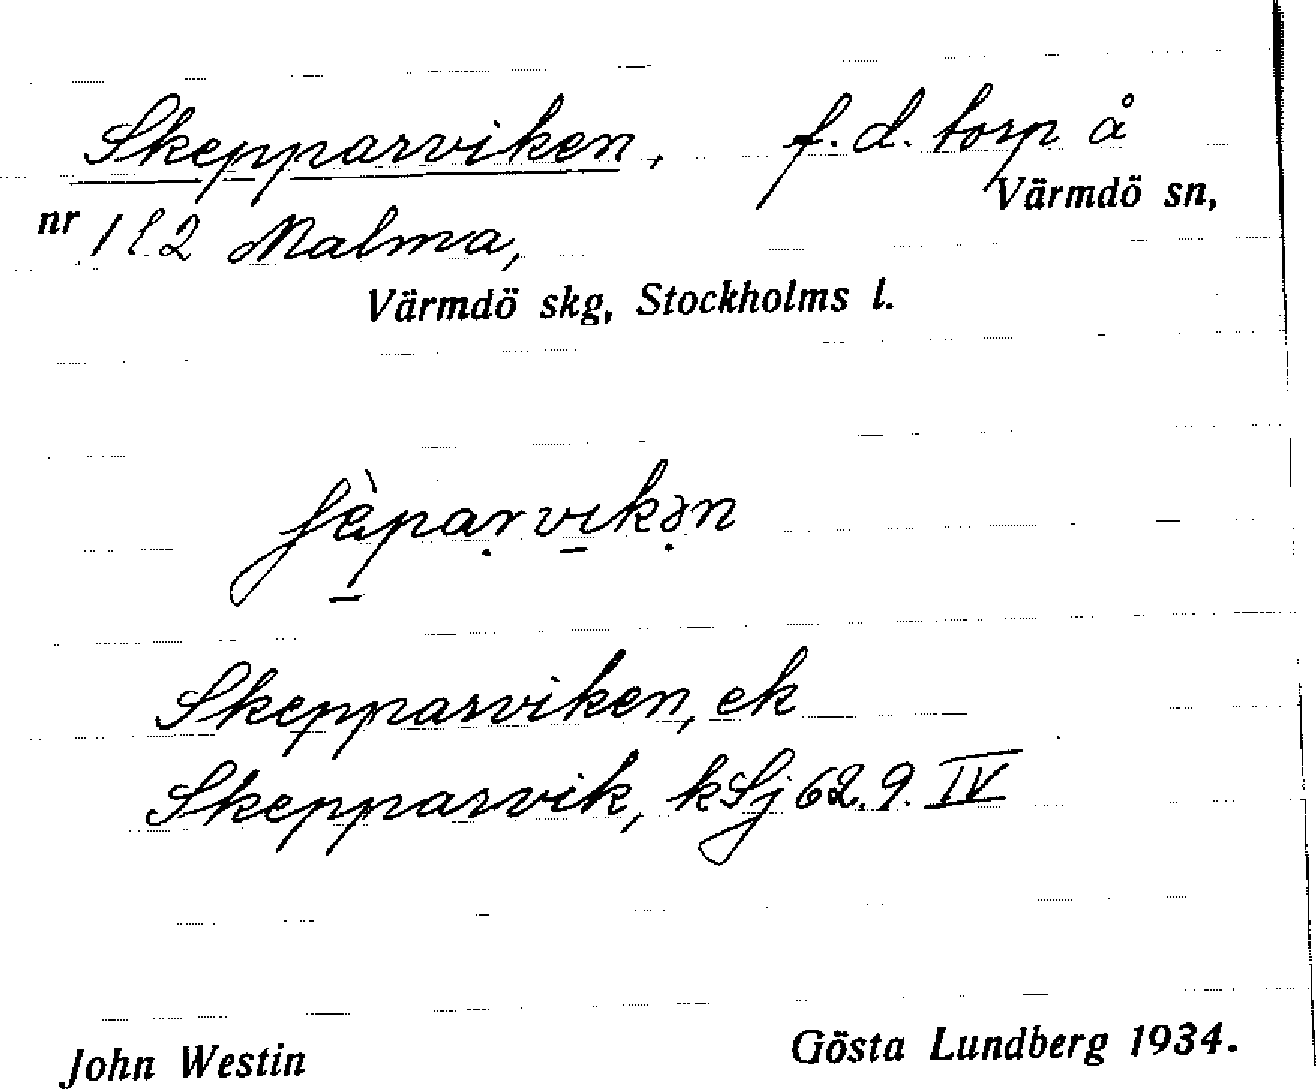 Skepparviken, f.d. torp å
Värmdö sn,
nr 1 l 2 Malma,
Värmdö skg, Stockholms l.
ʃèparvikən
Skepparviken, ek
Skepparvik, kSj 62.9. IV
John Westin Gösta Lundberg 1934.